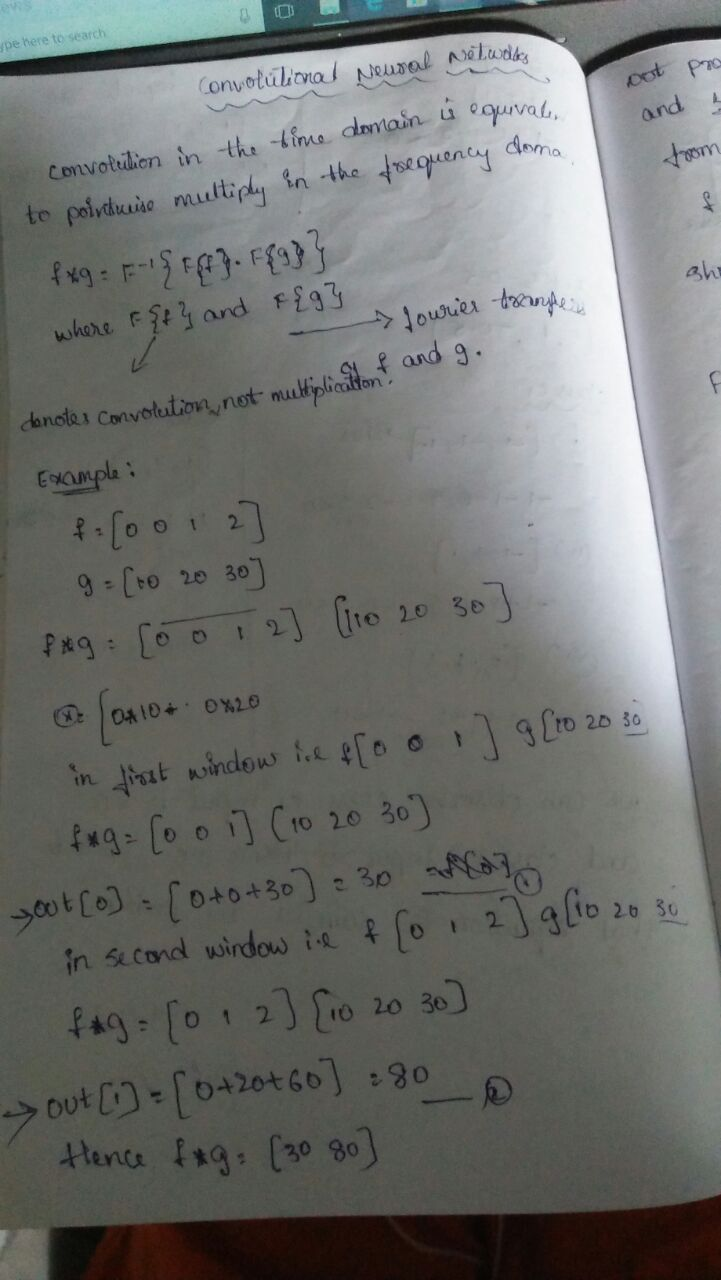 ype here to search
Convolutional Neural Networks
convolution in the time domain is equival.
to pointwise multiply in the frequency doma
f*g = F-1{F{f}.F{g}}
where F{f} and F{g} → fourier
of f and g.
denotes convolution, not multiplication.
Example:
f=[0 0 1 2]
g=[10 20 30]
f*g = [0 0 1 2] [110 20 30]
= [0*10+. 0*20
in first window i.e f[0 0 1] g[10 20 30
f*g = [0 0 1] (10 20 30]
→ out[0] = [0+0+30] = 30 1
in second window i.e f[0 1 2] g[10 20 30
f*g = [0 1 2] [10 20 30]
→ out[1] = [0+20+60] = 80 — 2
Hence f*g = [30 80]
not pro
and
from
f
sh
F